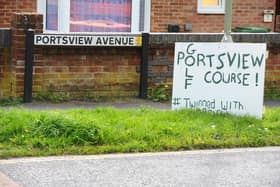 PORTSVIEW AVENUE
G
PORTSVIEW
L COURSE !
F
# Twinned with